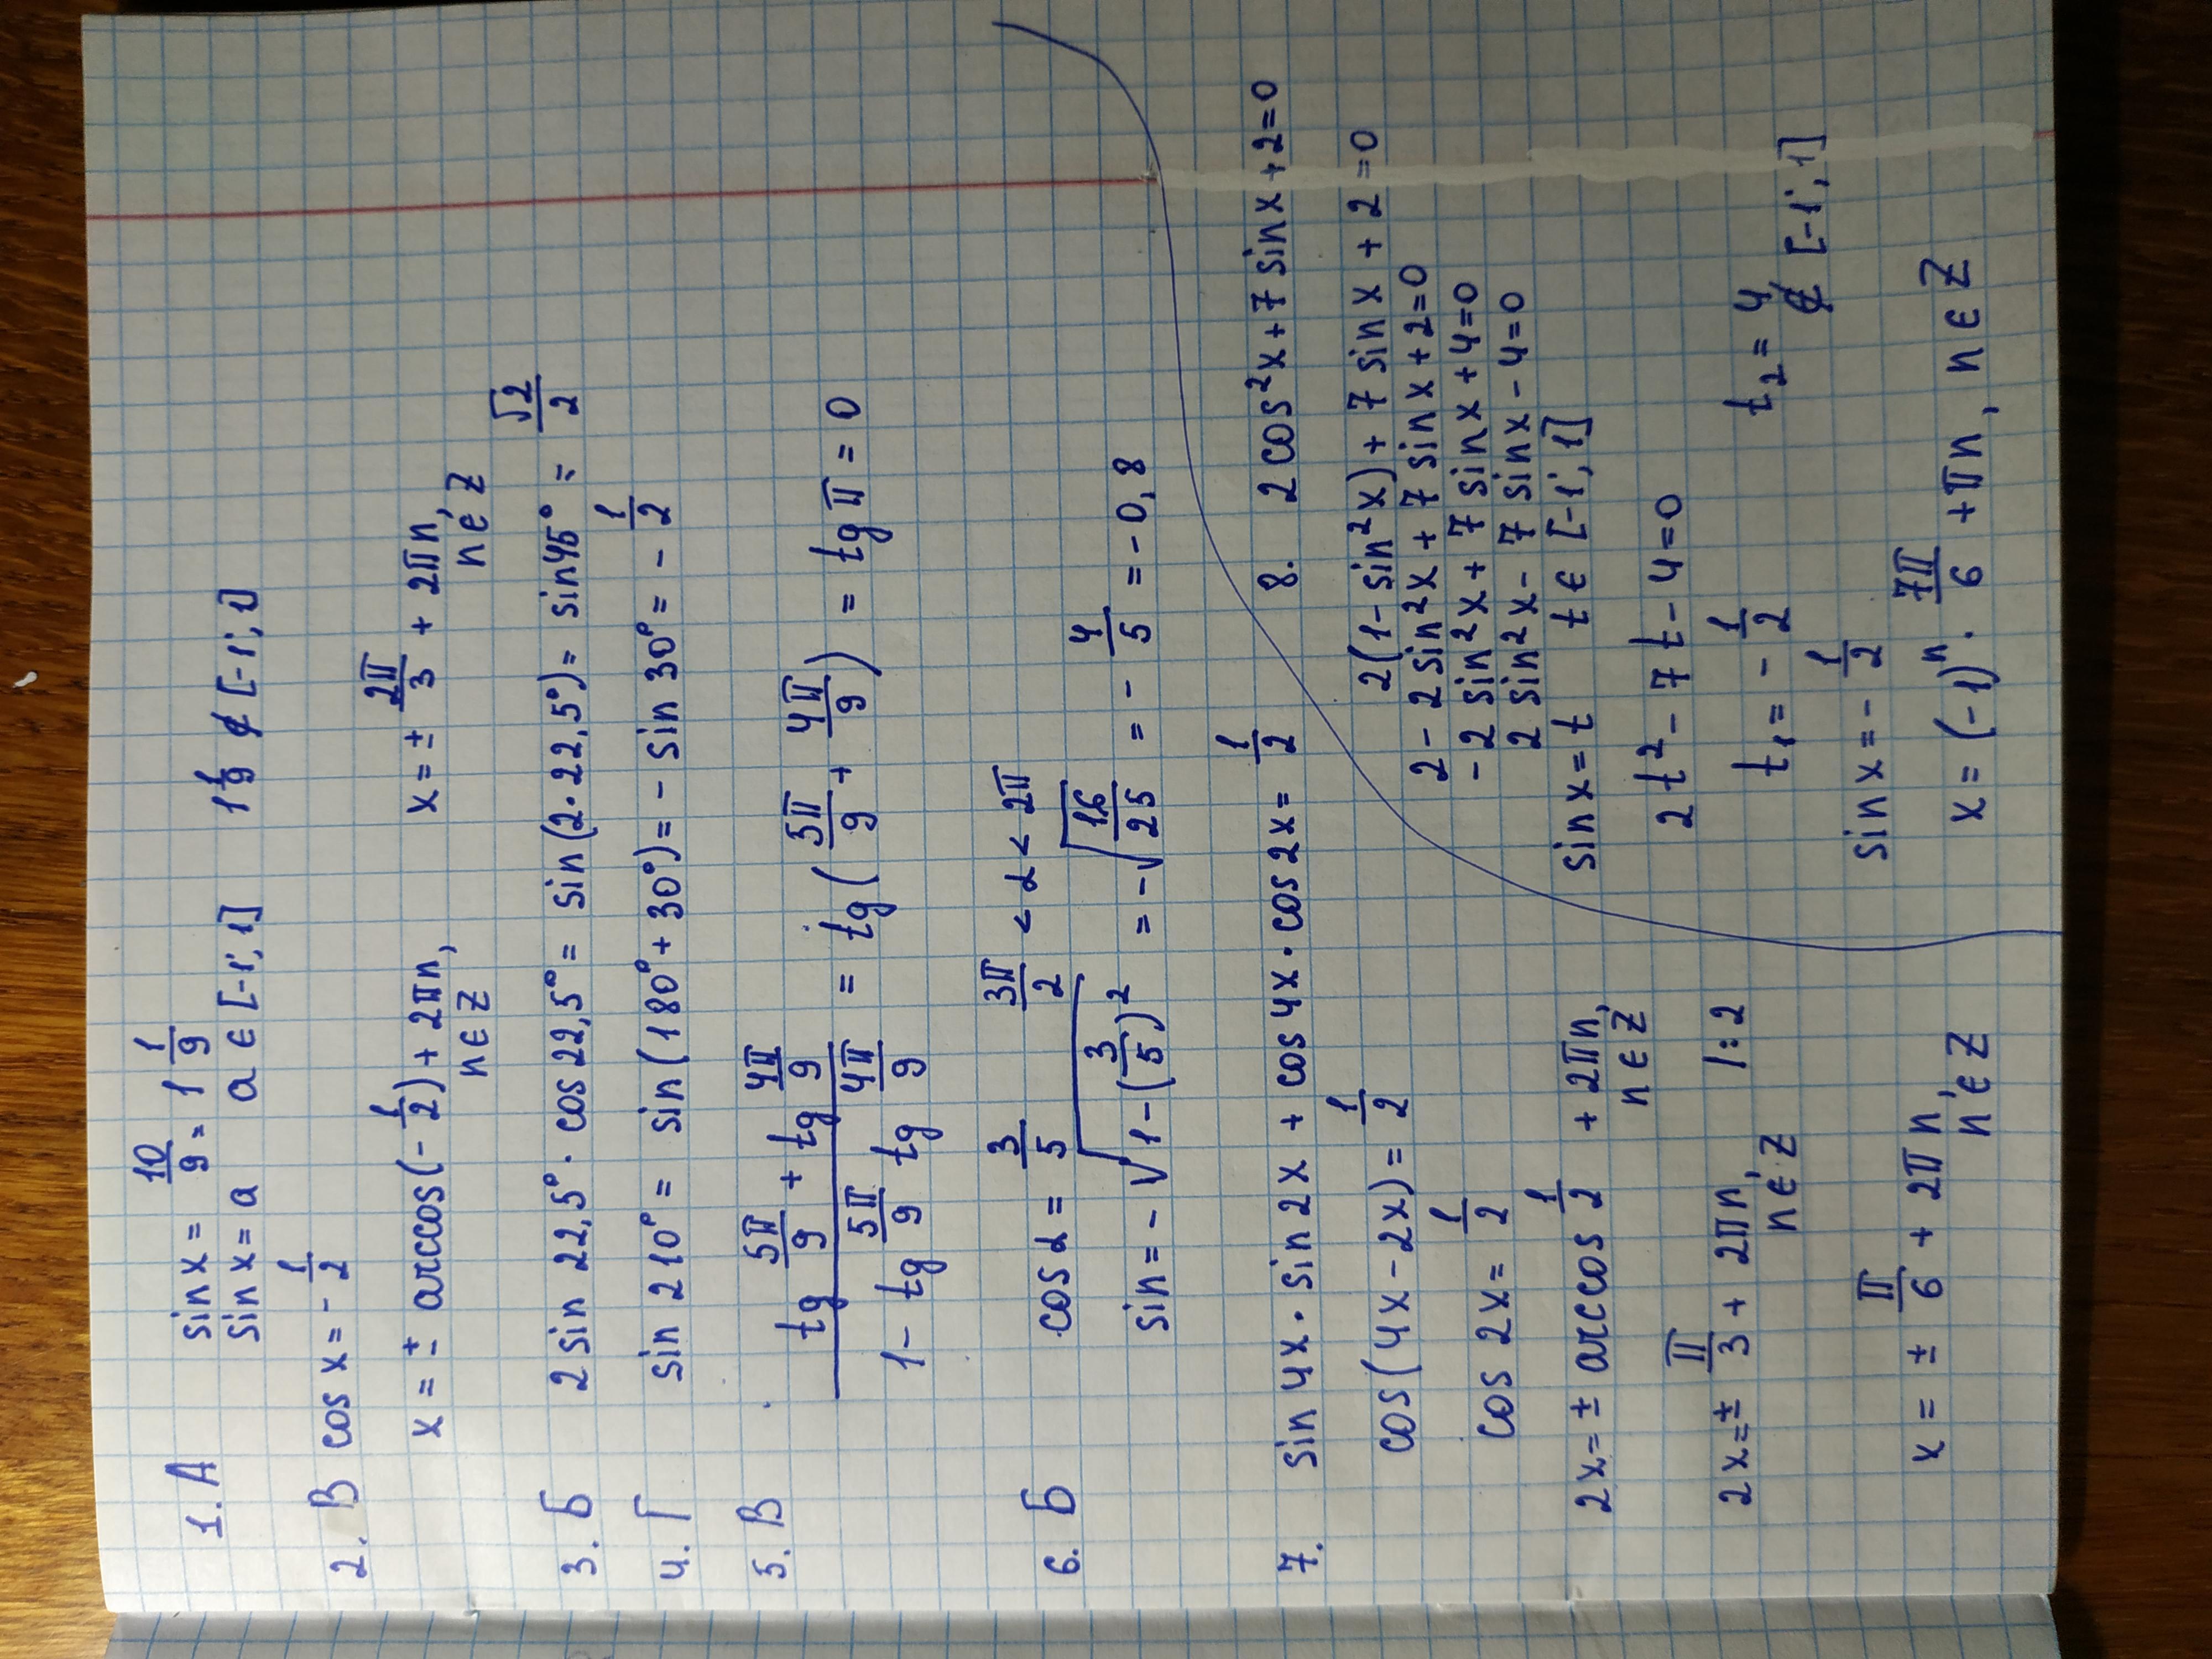 1. А sin x = 10/9 = 1 1/9
sin x = a a ∈ [-1; 1] 1 1/9 ∉ [-1; 1]
2. В cos x = - 1/2
x = ± arccos(- 1/2) + 2πn, n ∈ Z x = ± 2π/3 + 2πn, n ∈ Z
3. Б 2 sin 22,5° · cos 22,5° = sin(2·22,5°) = sin 45° = √2/2
4. Г sin 210° = sin(180° + 30°) = - sin 30° = - 1/2
5. В (tg 5π/9 + tg 4π/9)/(1 - tg 5π/9 tg 4π/9) = tg(5π/9 + 4π/9) = tg π = 0
6. Б cos α = 3/5 3π/2 < α < 2π
sin = - √(1 - (3/5)²) = - √(16/25) = - 4/5 = - 0,8
7. sin 4x · sin 2x + cos 4x · cos 2x = 1/2
cos(4x - 2x) = 1/2
cos 2x = 1/2
2x = ± arccos 1/2 + 2πn, n ∈ Z
2x = ± π/3 + 2πn, n ∈ Z /:2
x = ± π/6 + 2πn, n ∈ Z
8. 2 cos²x + 7 sin x + 2 = 0
2(1 - sin²x) + 7 sin x + 2 = 0
2 - 2 sin²x + 7 sin x + 2 = 0
-2 sin²x + 7 sin x + 4 = 0
2 sin²x - 7 sin x - 4 = 0
sin x = t t ∈ [-1; 1]
2t² - 7t - 4 = 0
t₁ = - 1/2 t₂ = 4 ∉ [-1; 1]
sin x = - 1/2
x = (-1)ⁿ · 7π/6 + πn, n ∈ Z